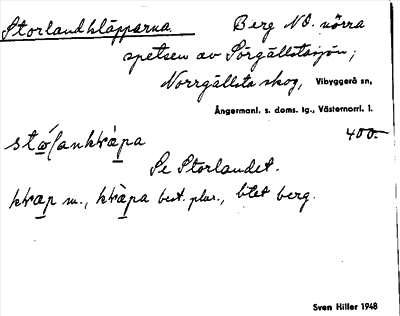 Storlandkläpparna. Berg NO. norra
spetsen av Sörgällstasjön;
Norrgällsta skog, Vibyggerå sn,
Ångermanl. s. doms. lg., Västernorrl. l.
400.
Se Storlandet.
m., best. plur., litet berg.
Sven Hiller 1948